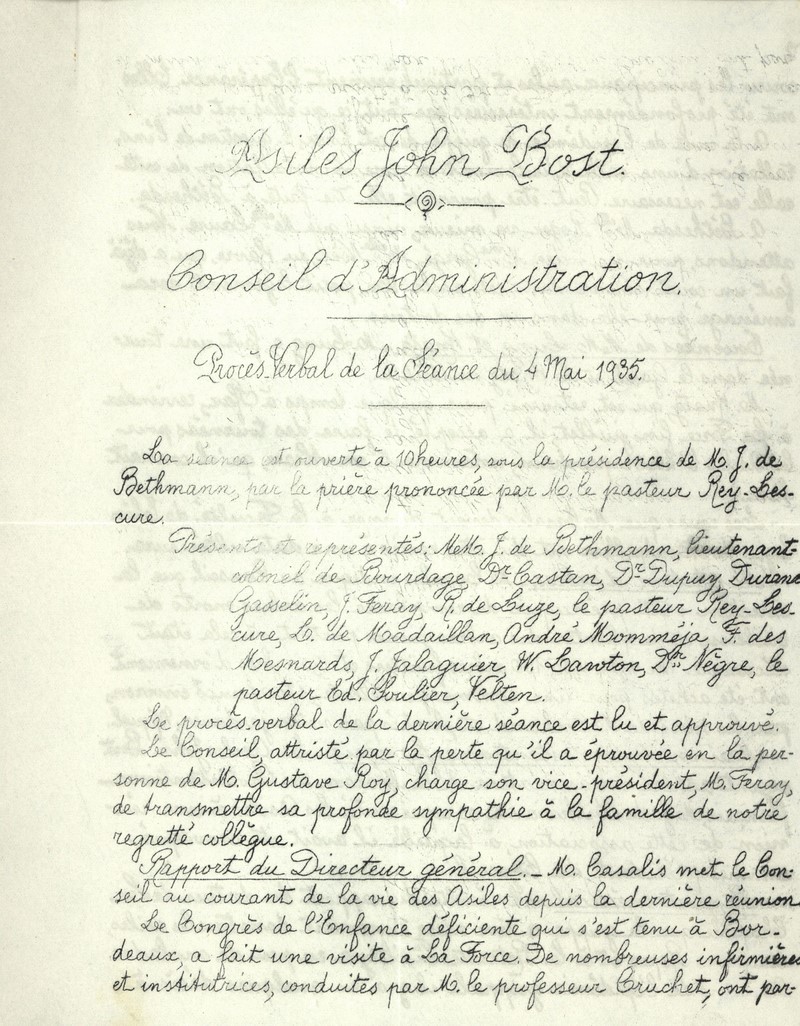 Asiles John Bost.
Conseil d'Administration.
Procès-Verbal de la Séance du 4 Mai 1935.
La séance est ouverte à 10 heures, sous la présidence de M. J. de
Bethmann, par la prière prononcée par M. le pasteur Rey-Les-
cure.
Présents et représentés: MM. J. de Bethmann, lieutenant-
colonel de Bourdage, Dr Castan, Dr Dupuy, Durand
Gasselin, J. Feray, R. de Luze, le pasteur Rey-Les-
cure, L. de Madaillan, André Momméja, F. des
Mesnards, J. Jalaguier, W. Lawton, Dr Nègre, le
pasteur Ed. Soulier, Velten.
Le procès-verbal de la dernière séance est lu et approuvé.
Le Conseil, attristé par la perte qu'il a éprouvée en la per-
sonne de M. Gustave Roy, charge son vice-président, M. Feray,
de transmettre sa profonde sympathie à la famille de notre
regretté collègue.
Rapport du Directeur général. - M. Casalis met le Con-
seil au courant de la vie des Asiles depuis la dernière réunion
Le Congrès de l'Enfance déficiente qui s'est tenu à Bor-
deaux, a fait une visite à La Force. De nombreuses infirmières
et institutrices, conduites par M. le professeur Cruchet, ont par-